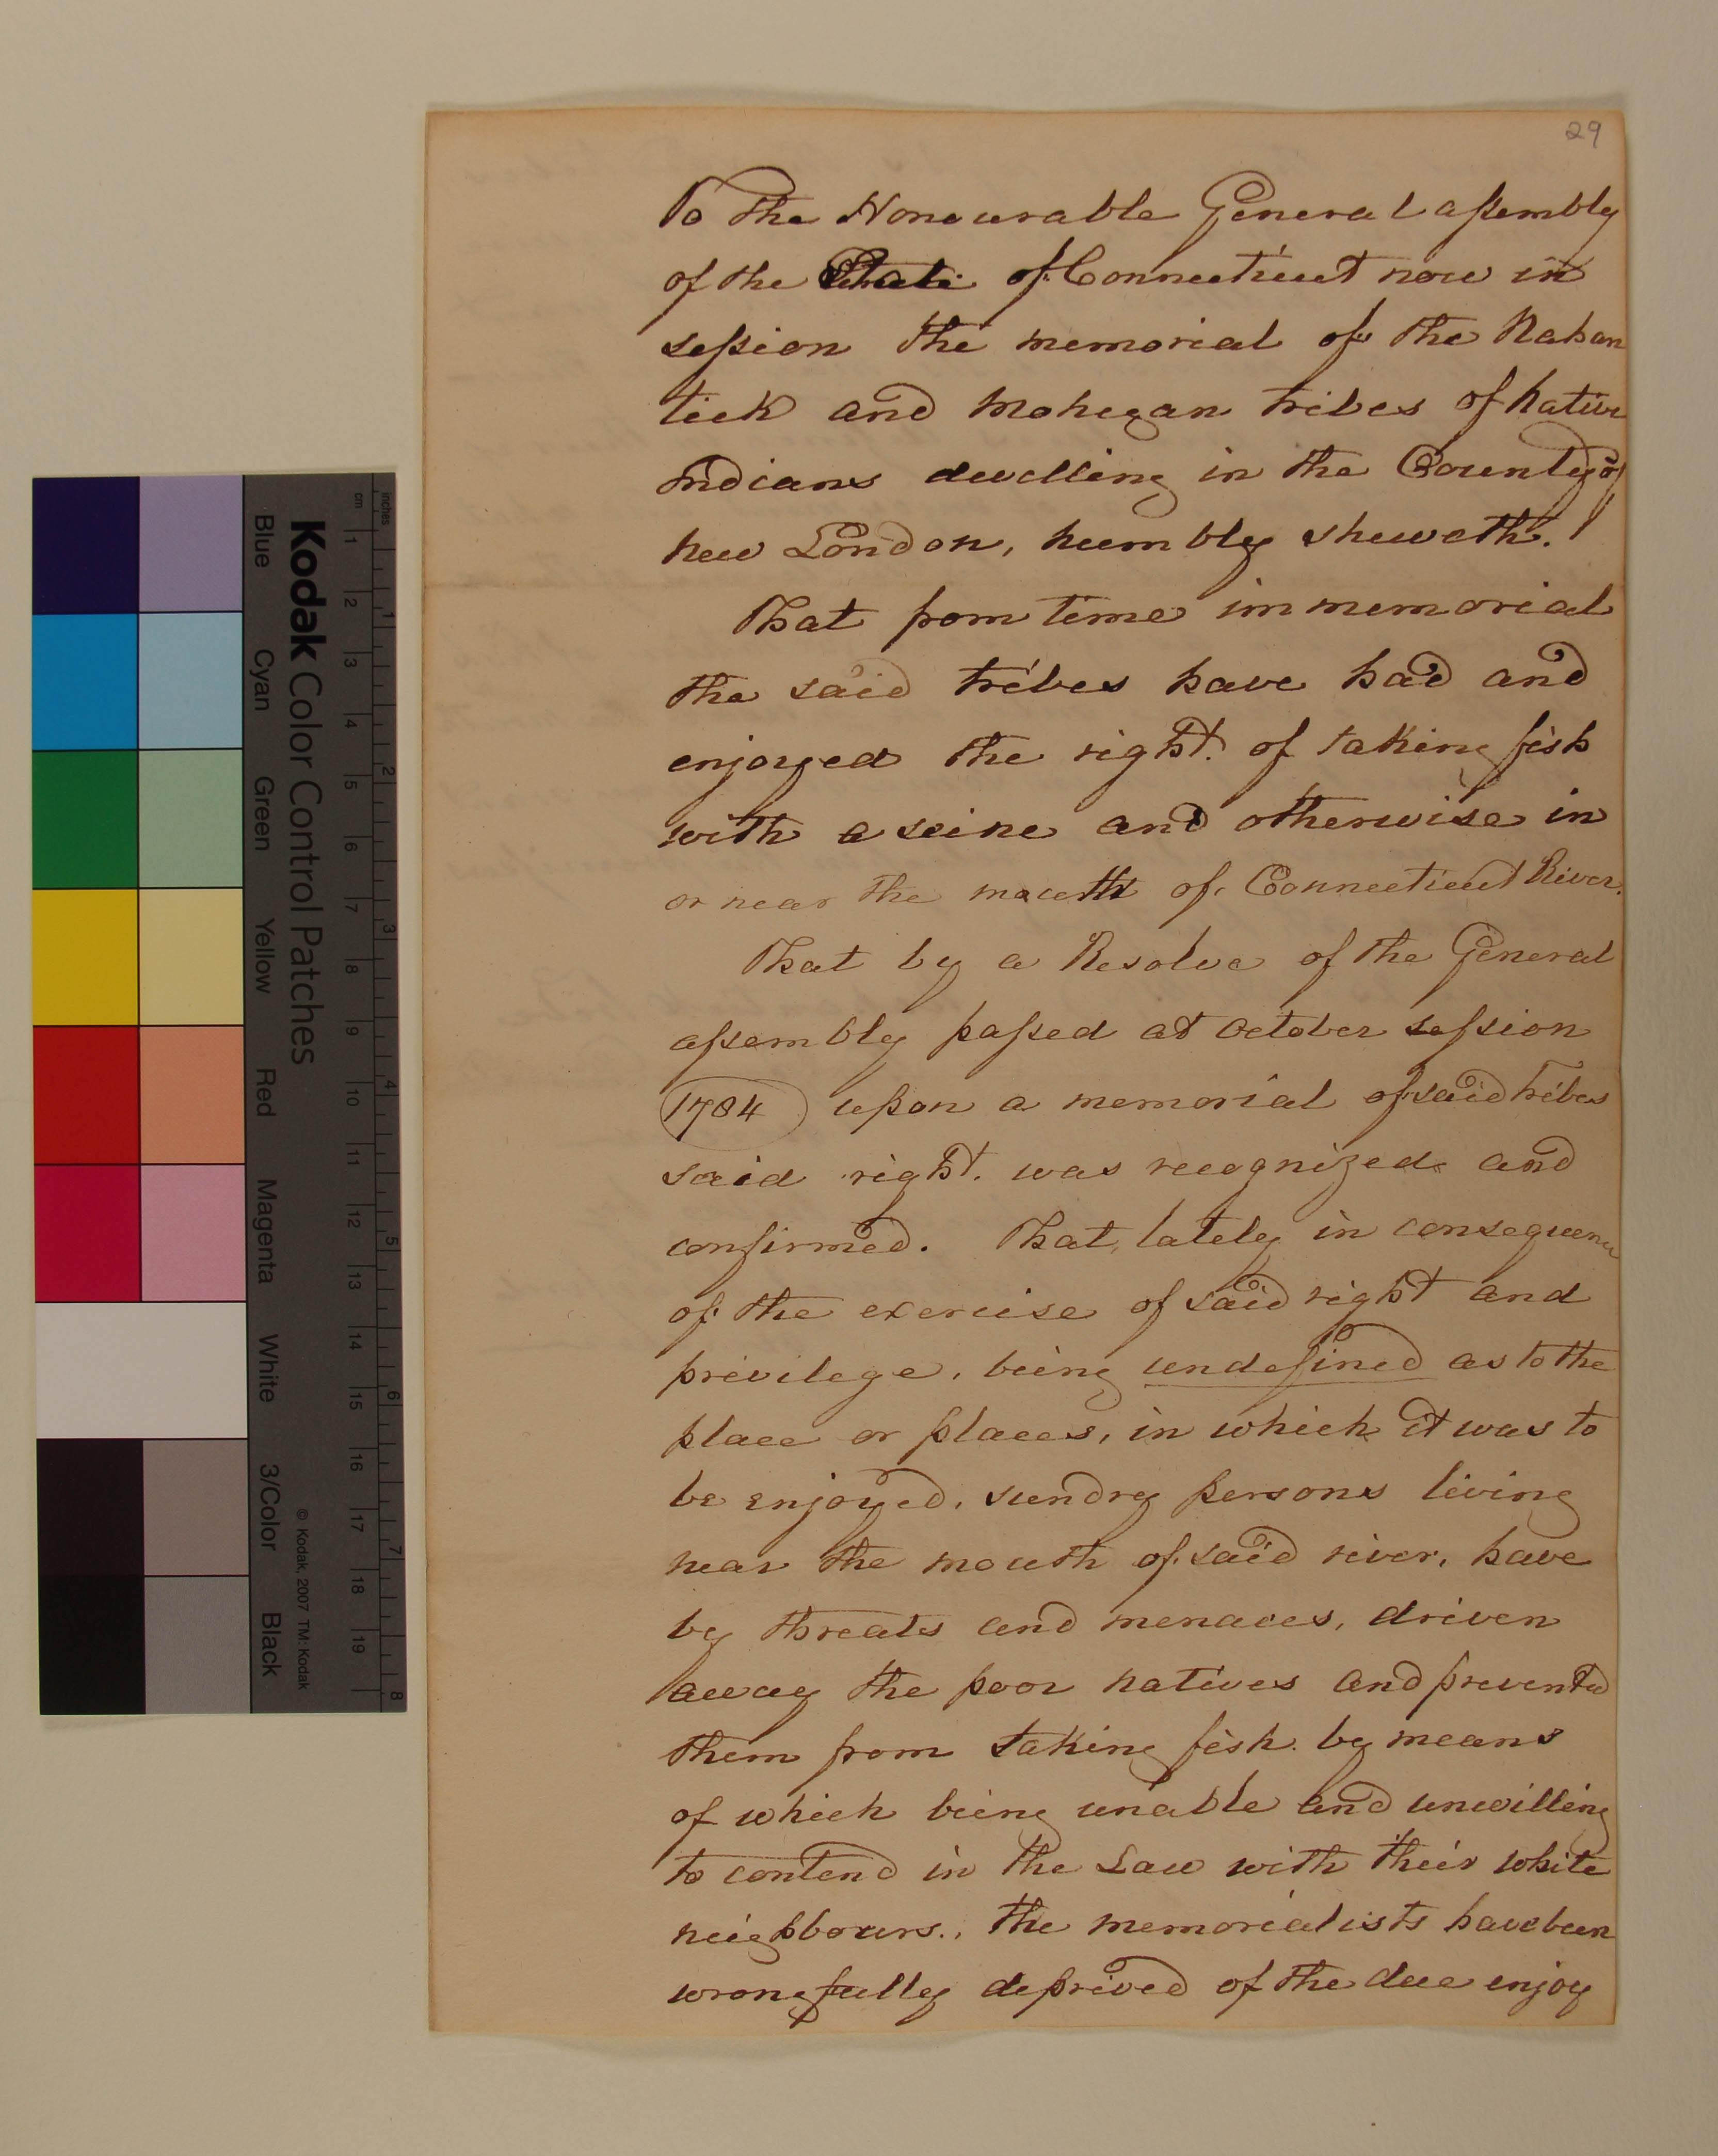 29
To the Honourable General assembly
of the State of Connecticut now in
session the memorial of the Nahan
tick and Mohegan tribes of native
Indians dwelling in the County of
new London, humbly sheweth.
That from time immemorial
the said tribes have had and
enjoyed the right of taking fish
with a seine and otherwise in
or near the mouth of Connecticut River.
That by a Resolve of the General
assembly passed at October session
1784 upon a memorial of said tribes
said right was recognized and
confirmed. That, lately in consequence
of the exercise of said right and
privilege, being undefined as to the
place or places, in which it was to
be enjoyed, sundry persons living
near the mouth of said river, have
by threats and menaces, driven
away the poor natives and prevented
them from taking fish. by means
of which being unable and unwilling
to contend in the Law with their white
neighbours., the memorialists have been
wrongfully deprived of the due enjoy
Kodak Color Control Patches
Blue Cyan Green Yellow Red Magenta White 3/Color Black
© Kodak, 2007 TM: Kodak
inches
cm
1 2 3 4 5 6 7 8
1 2 3 4 5 6 7 8 9 10 11 12 13 14 15 16 17 18 19